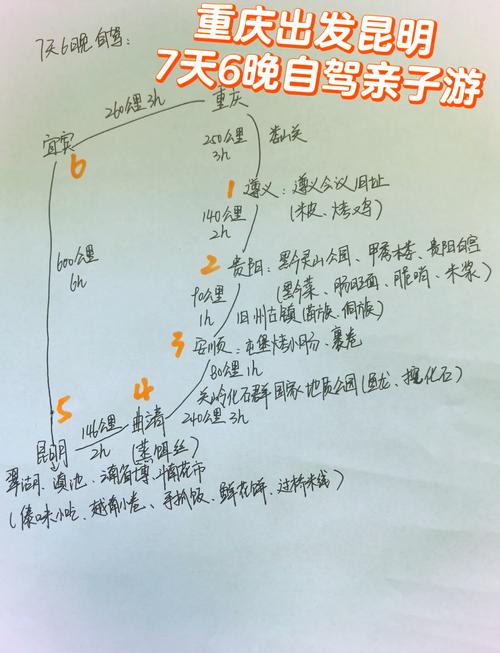 重庆出发昆明
7天6晚自驾亲子游
7天6晚自驾:
260公里 3h
重庆
宜宾
6
250公里
3h
娄山关
1
遵义:遵义会议旧址
(米皮、烤鸡)
140公里
2h
2
贵阳:黔灵山公园、甲秀楼、贵阳白宫
(黔菜、肠旺面、脆哨、米浆)
600公里
6h
90公里
1h
旧州古镇(苗族、侗族)
3
安顺:屯堡烤小肠、裹卷
80公里 1h
关岭化石群国家地质公园(恐龙、挖化石)
4
5
昆明
146公里
2h
曲靖
240公里 3h
(蒸饵丝)
翠湖、滇池、云南省博、斗南花市
(傣味小吃、越南小卷、手抓饭、鲜花饼、过桥米线)